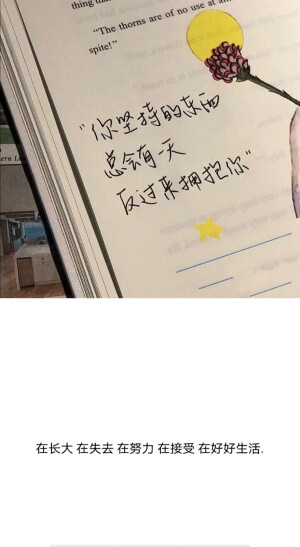 thing tha
"The thorns are of no use at a
spite!"
"你坚持的东西
总会有一天
反过来拥抱你"
在长大 在失去 在努力 在接受 在好好生活.